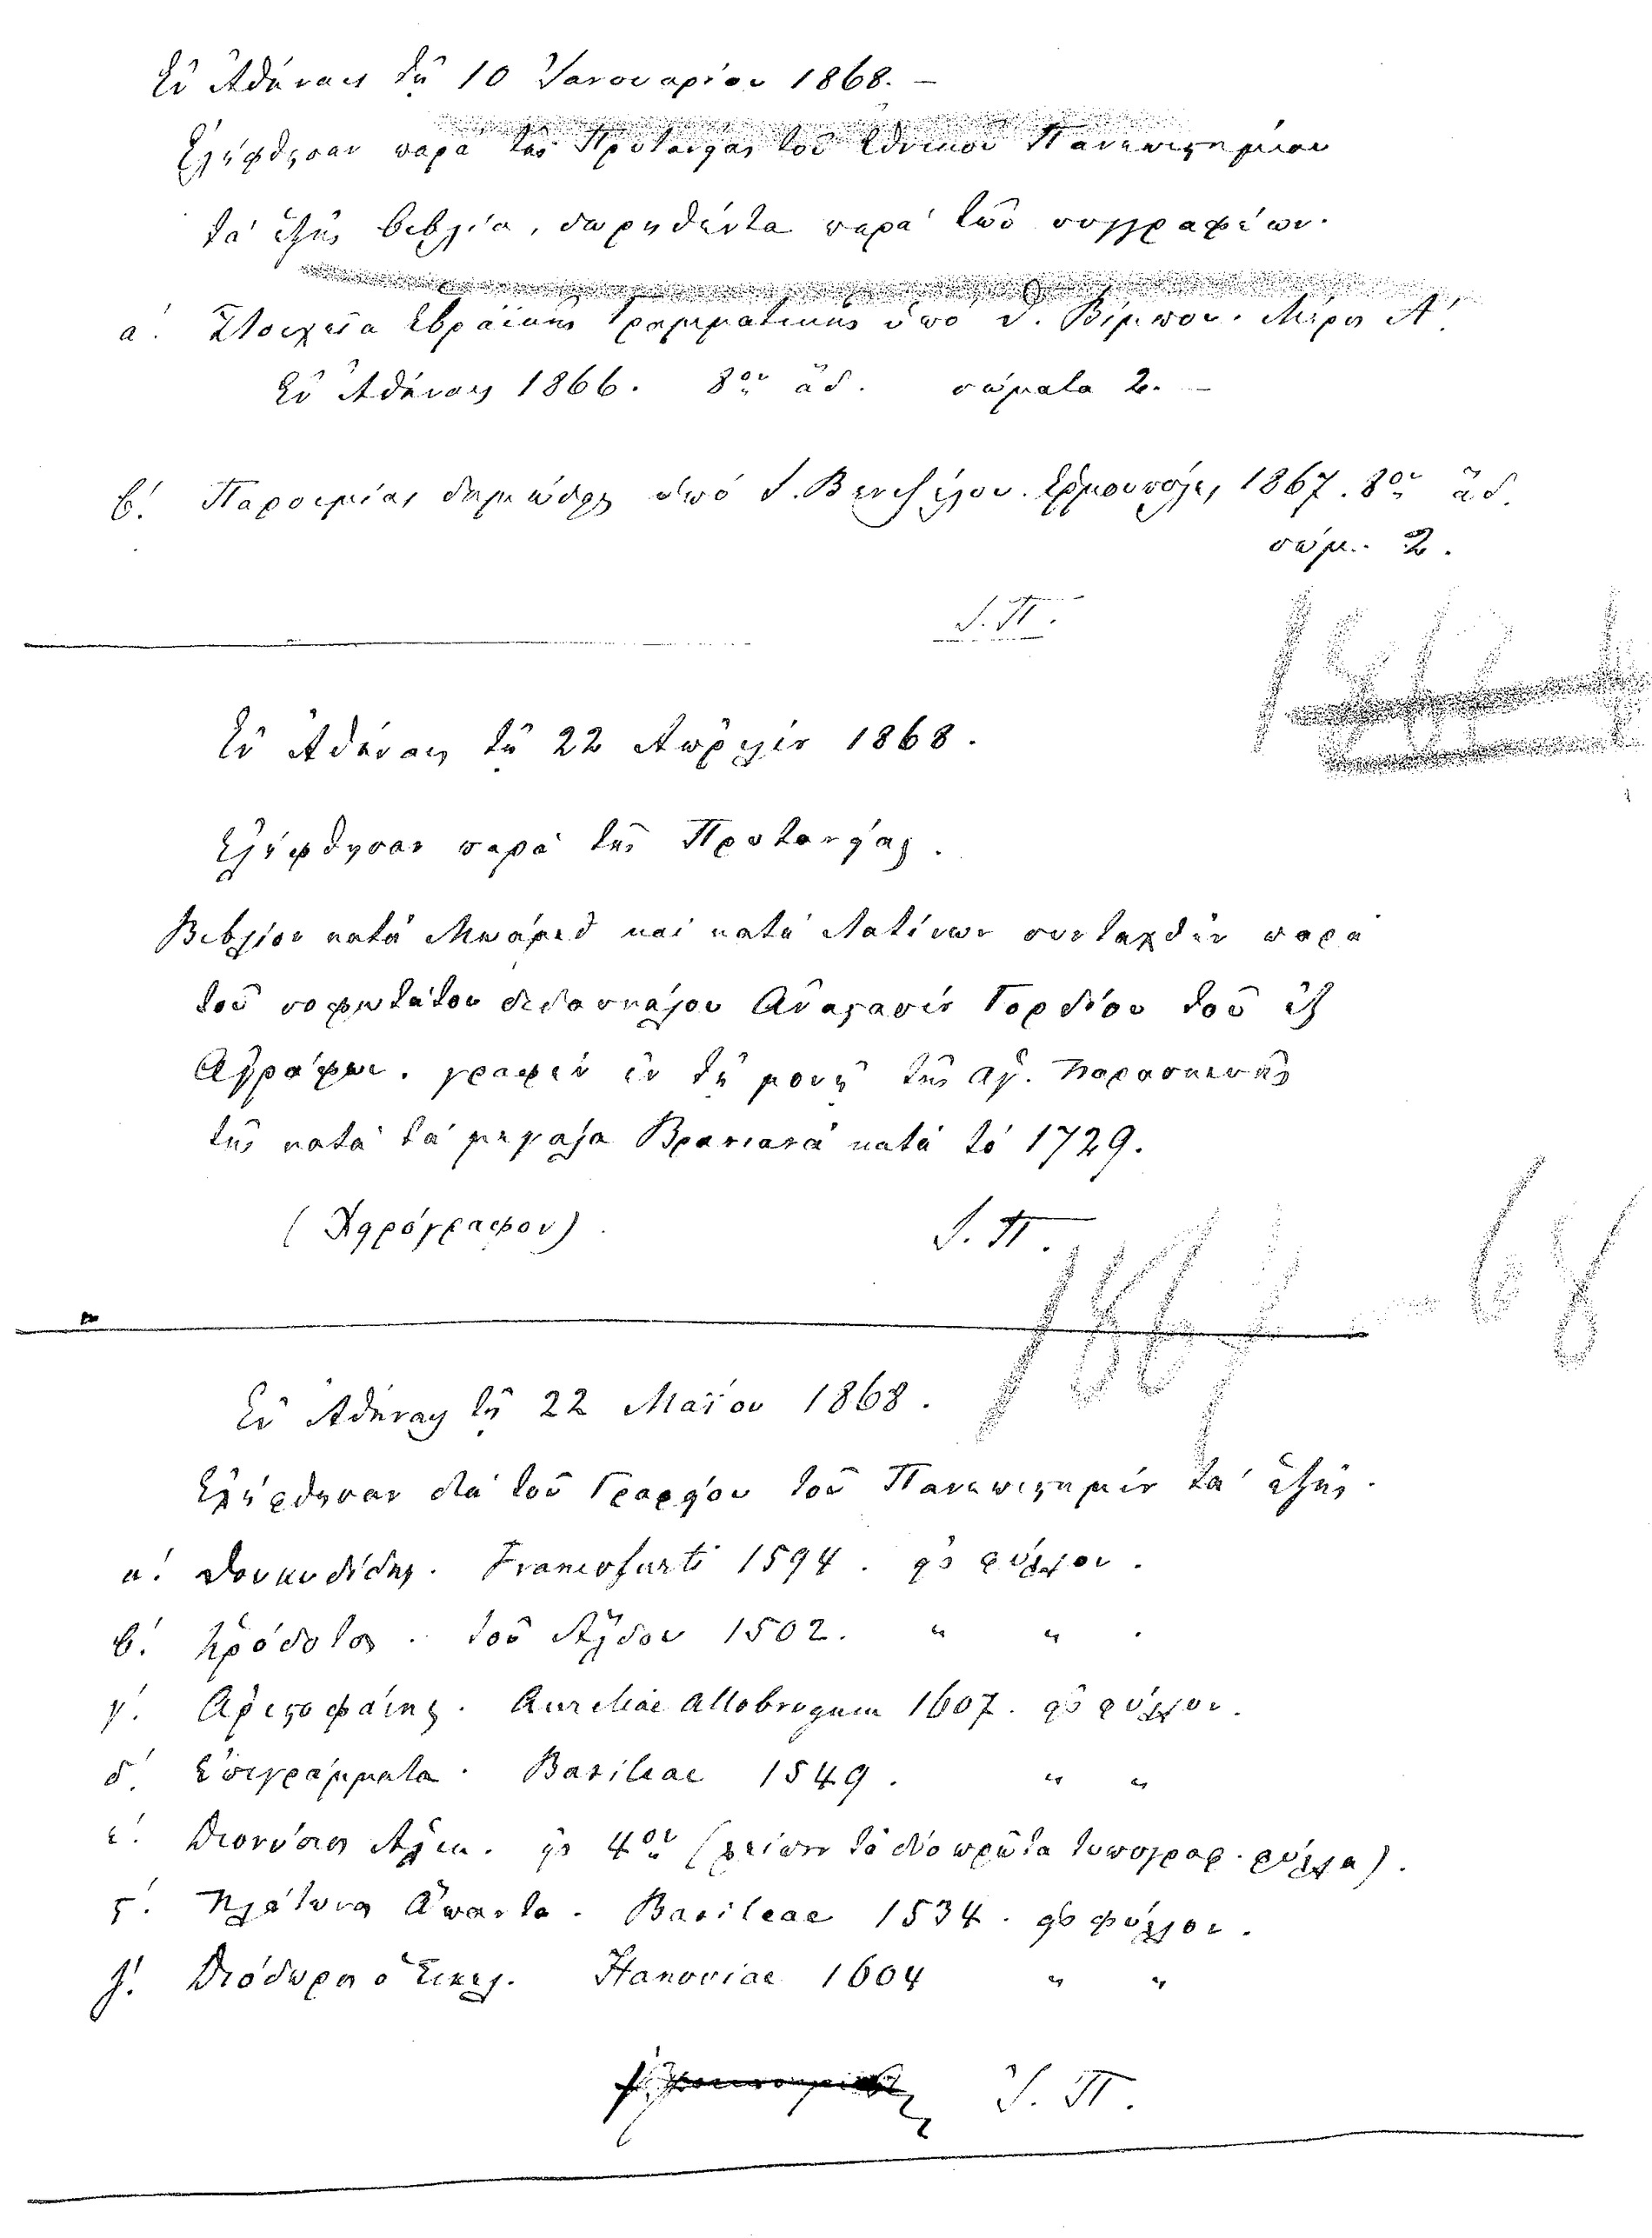 Ἐν Ἀθήναις τῇ 10 Ἰανουαρίου 1868. –
Ἐλήφθησαν παρὰ τῆς Πρυτανείας τοῦ Ἐθνικοῦ Πανεπιστημίου
τὰ ἑξῆς βιβλία, δωρηθέντα παρὰ τῶν συγγραφέων.
α΄. Στοιχεῖα Ἑβραϊκῆς Γραμματικῆς ὑπὸ Θ. Βίμπου. Μέρος Α΄.
Ἐν Ἀθήναις 1866. 8ον ἄδ. σώματα 2. –
β΄. Παροιμίαι δημώδεις ὑπὸ Ι. Βενιζέλου. Ἑρμουπόλει 1867. 8ον ἄδ.
σώμ. 2.
Ι. Π.
Ἐν Ἀθήναις τῇ 22 Ἀπριλίου 1868.
Ἐλήφθησαν παρὰ τῆς Πρυτανείας.
Βιβλίον κατὰ Μωάμεθ καὶ κατὰ Λατίνων συνταχθὲν παρὰ
τοῦ σοφωτάτου διδασκάλου Ἀναστασίου Γορδίου τοῦ ἐξ
Ἀγράφων. γραφὲν ἐν τῇ μονῇ τῆς Ἁγ. Παρασκευῆς
τῆς κατὰ τὰ μεγάλα Βρανιανὰ κατὰ τὸ 1729.
(Χειρόγραφον).
Ι. Π.
1867 – 68
Ἐν Ἀθήναις τῇ 22 Μαΐου 1868.
Ἐλήφθησαν διὰ τοῦ Γραφείου τοῦ Πανεπιστημίου τὰ ἑξῆς.
α΄. Θουκυδίδης. Francofurti 1594. εἰς φύλλον.
β΄. Ἡρόδοτος. τοῦ Ἄλδου 1502. " " .
γ΄. Ἀριστοφάνης. Aureliae Allobrogum 1607. εἰς φύλλον.
δ΄. Ἐπιγράμματα. Basileae 1549. " "
ε΄. Διονύσιος Ἀλικ. εἰς 4ον (λείπουν τὰ δύο πρῶτα τυπογραφ. φύλλα).
ς΄. Πλάτωνος Ἅπαντα. Basileae 1534. εἰς φύλλον.
ζ΄. Διόδωρος ὁ Σικελ. Hanoviae 1604 " "
Ι. Π.